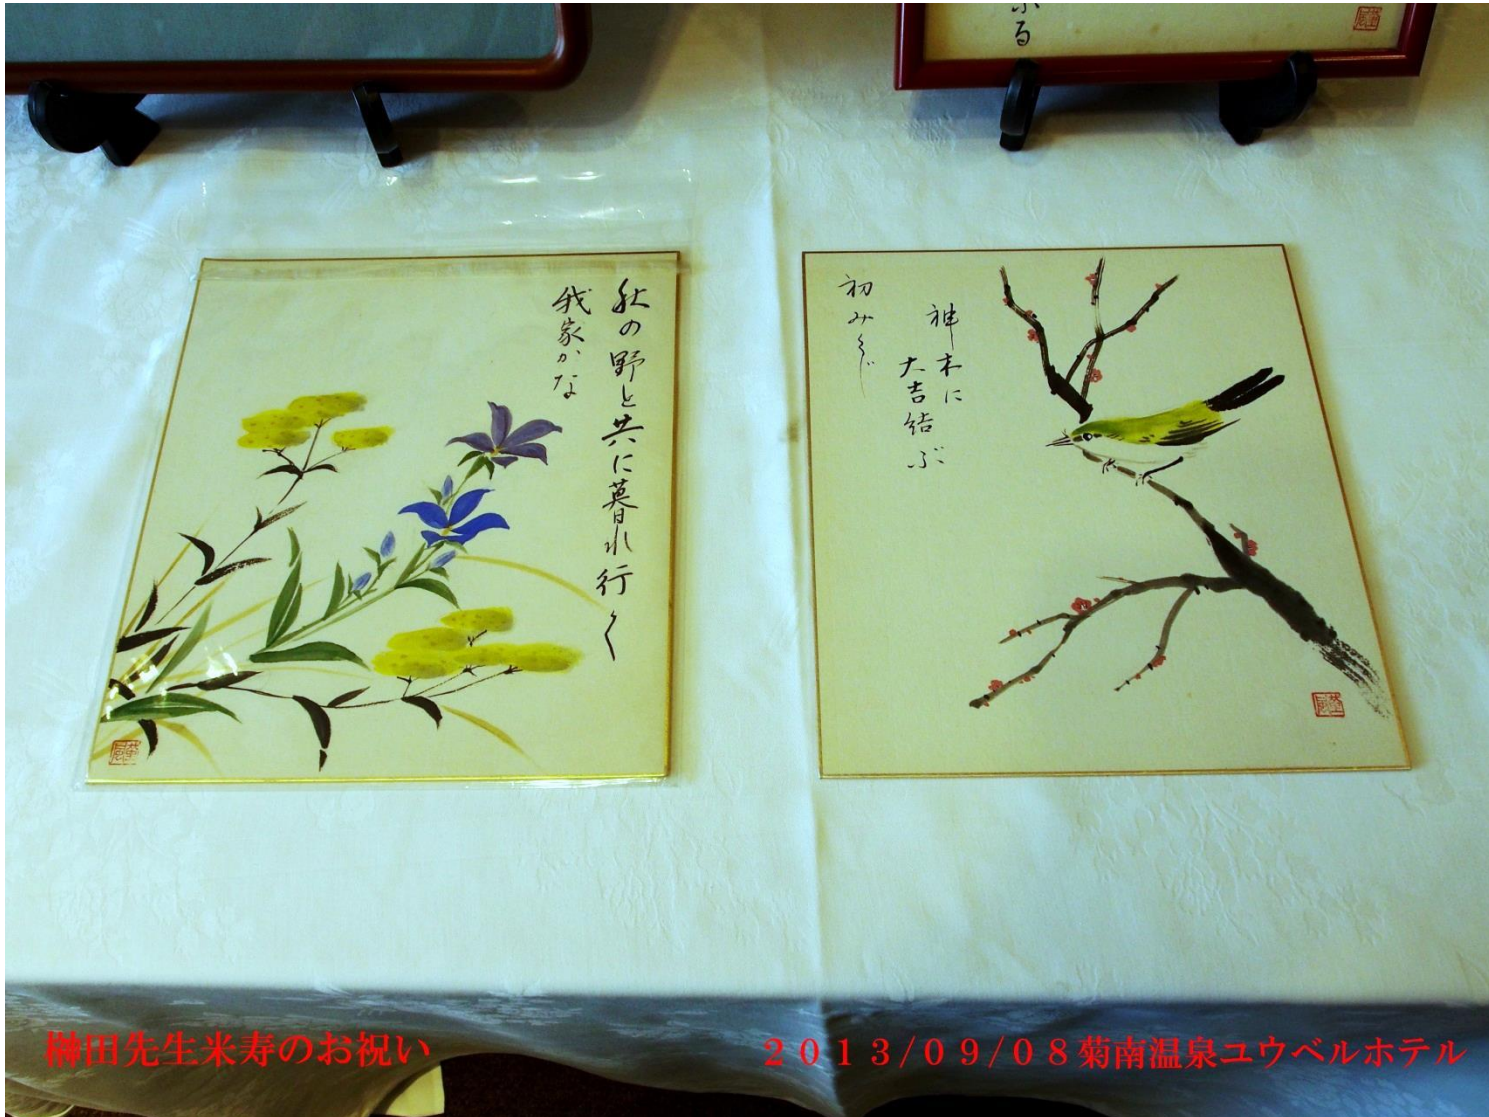 ぶる
秋の野と共に暮れ行く
我家かな
神木に
大吉結ぶ
初みくじ
榊田先生米寿のお祝い
２０１３/０９/０８菊南温泉ユウベルホテル